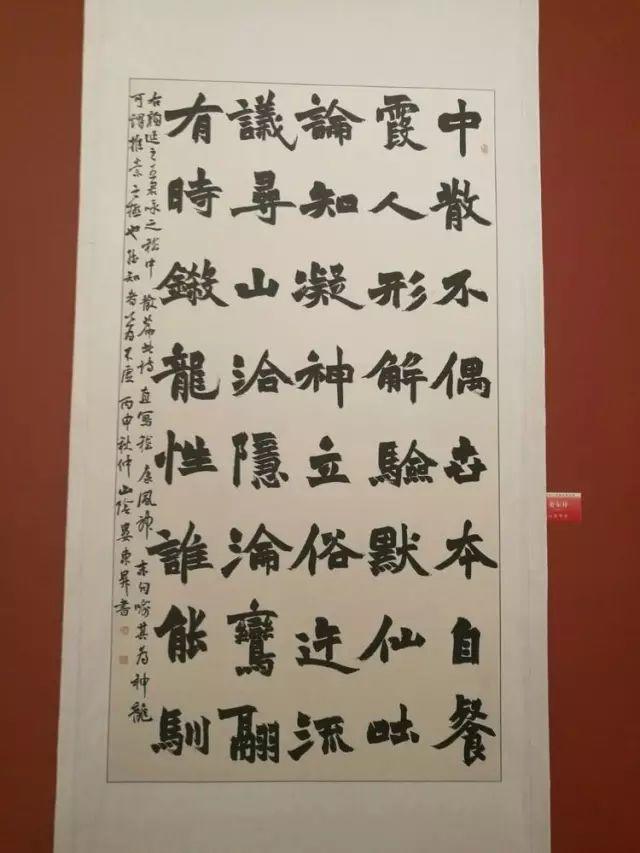 中散不偶卋本自餐
霞人形解驗默仙吐
論知凝神立俗迕流
議尋山洽隱淪鸞翮
有時鎩龍性誰能馴
右顏延之五君咏之嵇中散篇此詩直寫嵇康風神末句喻其為神龍
可謂推崇之極也知者以為不虛丙申秋仲山陰東昇書